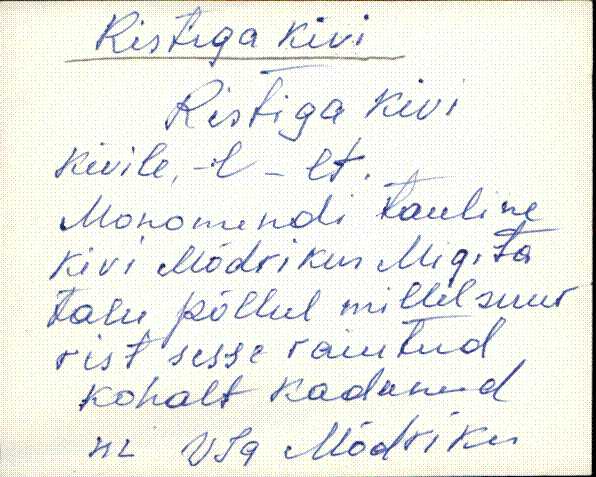 Ristiga kivi
Ristiga kivi
kivile, -l - lt.
Monomendi tauline
kivi Mõdrikus Migita
talu põllul millel suur
rist sesse raiutud
kohalt kadunud
VJg Mõdriku